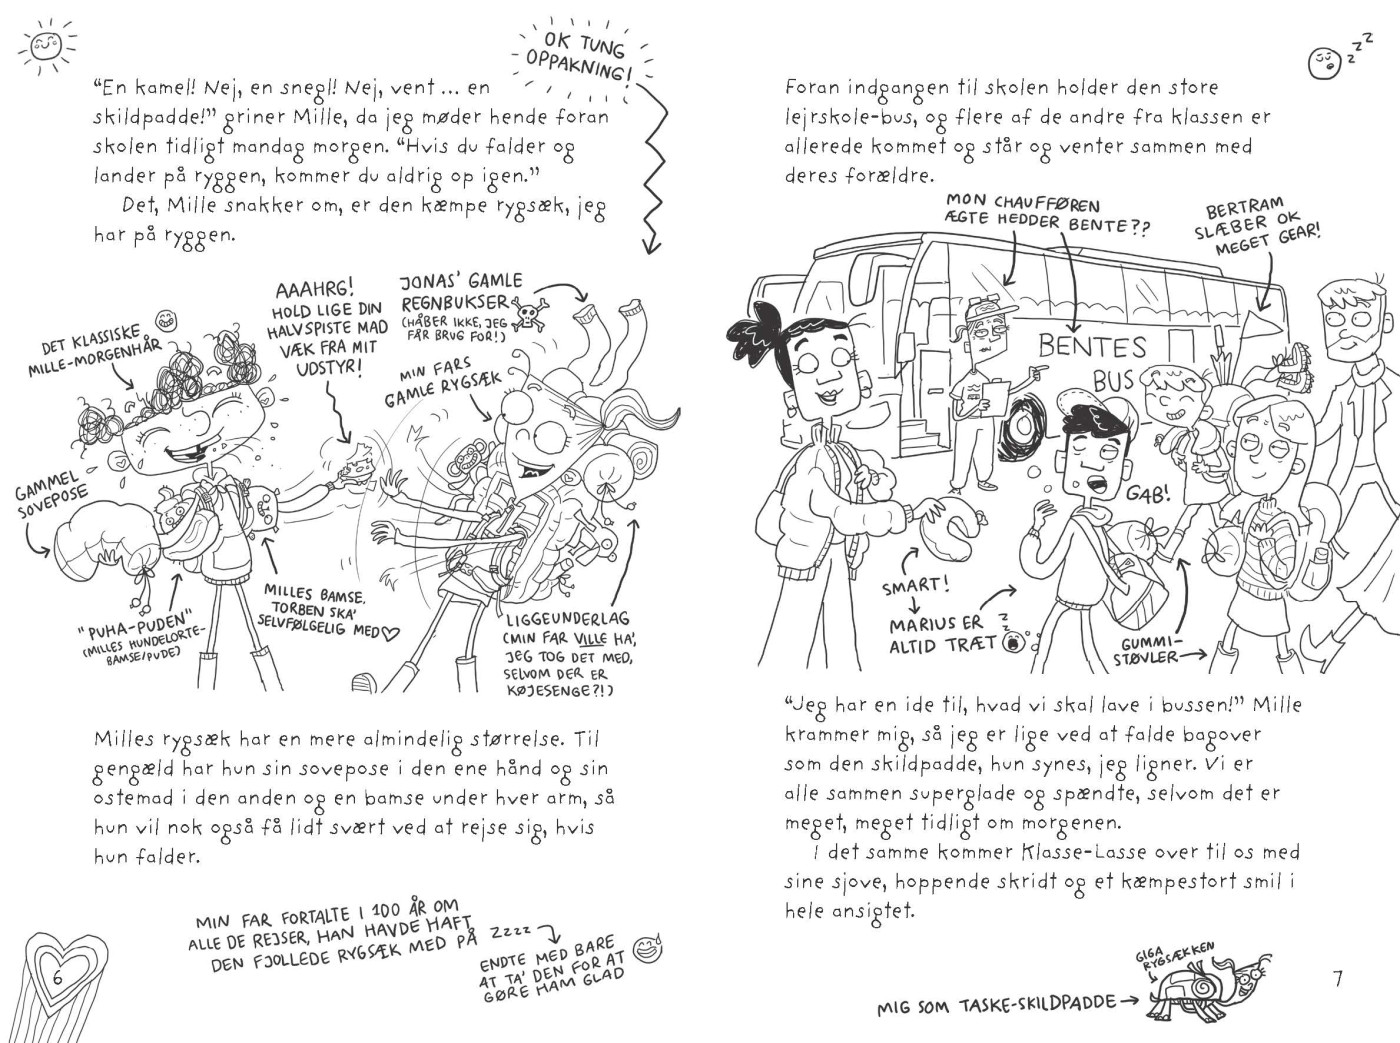 OK TUNG
OPPAKNING!
“En kamel! Nej, en snegl! Nej, vent ... en
skildpadde!” griner Mille, da jeg møder hende foran
skolen tidligt mandag morgen. “Hvis du falder og
lander på ryggen, kommer du aldrig op igen.”
Det, Mille snakker om, er den kæmpe rygsæk, jeg
har på ryggen.
DET KLASSISKE
MILLE-MORGENHÅR
AAAHRG!
HOLD LIGE DIN
HALVSPISTE MAD
VÆK FRA MIT
UDSTYR!
JONAS’ GAMLE
REGNBUKSER
(HÅBER IKKE, JEG
FÅR BRUG FOR!)
MIN FARS
GAMLE RYGSÆK
GAMMEL
SOVEPOSE
"PUHA-PUDEN"
(MILLES HUNDELORTE-
BAMSE/PUDE)
MILLES BAMSE,
TORBEN SKA’
SELVFØLGELIG MED
LIGGEUNDERLAG
(MIN FAR VILLE HA’,
JEG TOG DET MED,
SELVOM DER ER
KØJESENGE?!)
Milles rygsæk har en mere almindelig størrelse. Til
gengæld har hun sin sovepose i den ene hånd og sin
ostemad i den anden og en bamse under hver arm, så
hun vil nok også få lidt svært ved at rejse sig, hvis
hun falder.
MIN FAR FORTALTE I 100 ÅR OM
ALLE DE REJSER, HAN HAVDE HAFT
DEN FJOLLEDE RYGSÆK MED PÅ ZZZZ
ENDTE MED BARE
AT TA’ DEN FOR AT
GØRE HAM GLAD
6
z z z
Foran indgangen til skolen holder den store
lejrskole-bus, og flere af de andre fra klassen er
allerede kommet og står og venter sammen med
deres forældre.
MON CHAUFFØREN
ÆGTE HEDDER BENTE??
BERTRAM
SLÆBER OK
MEGET GEAR!
BENTES
BUS
GAB!
SMART!
MARIUS ER
ALTID TRÆT
z z
GUMMI-
STØVLER
“Jeg har en ide til, hvad vi skal lave i bussen!” Mille
krammer mig, så jeg er lige ved at falde bagover
som den skildpadde, hun synes, jeg ligner. Vi er
alle sammen superglade og spændte, selvom det er
meget, meget tidligt om morgenen.
I det samme kommer Klasse-Lasse over til os med
sine sjove, hoppende skridt og et kæmpestort smil i
hele ansigtet.
GIGA
RYGSÆKKEN
MIG SOM TASKE-SKILDPADDE
7